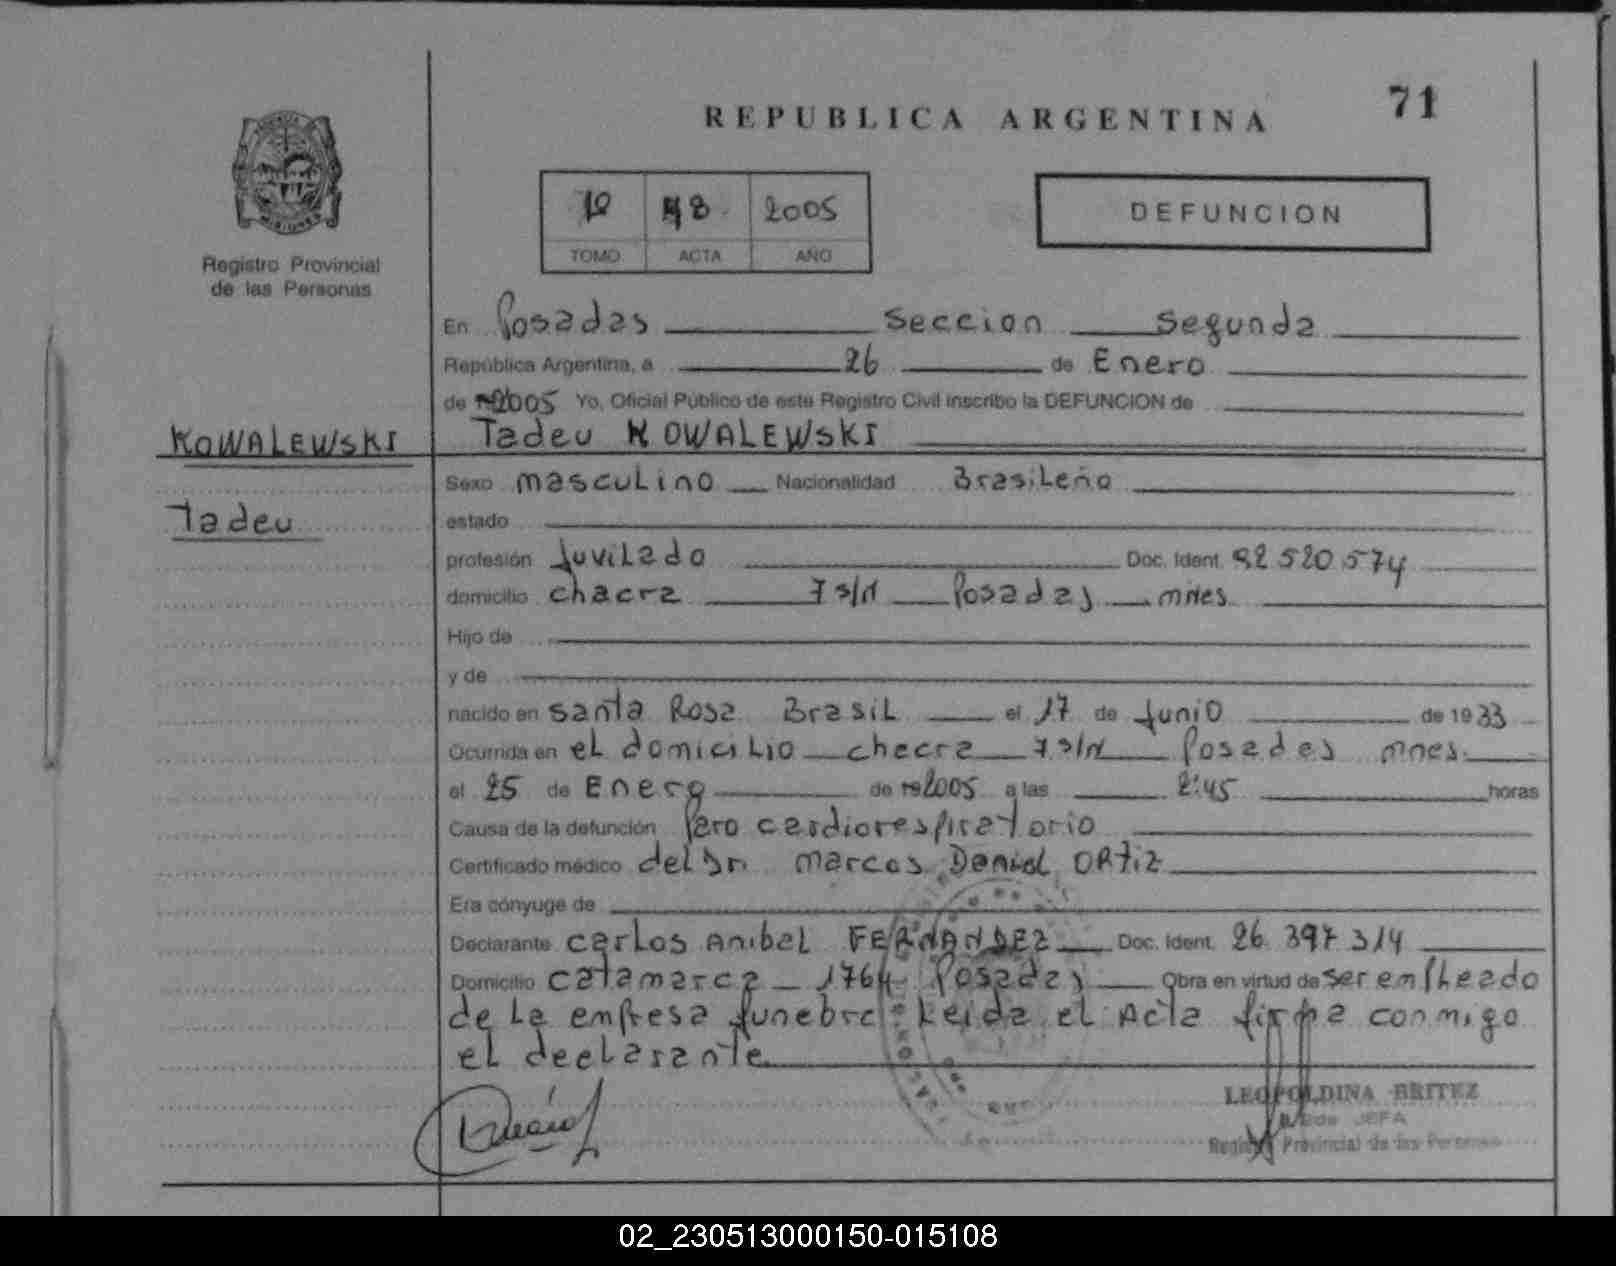 71
REPUBLICA ARGENTINA
DEFUNCION
2005
TOMO ACTA AÑO
Registro Provincial
de las Personas
En Posadas Seccion Segunda
República Argentina, a 26 de Enero
de 2005 Yo, Oficial Público de este Registro Civil inscribo la DEFUNCION de
KOWALEWSKI Tadeu KOWALEWSKI
Sexo masculino Nacionalidad Brasileño
Tadeu estado
profesión Juvilado Doc. Ident. 92 520 574
domicilio chacra 7 s/n Posadas mnes
Hijo de
y de
nacido en Santa Rosa Brasil el 17 de Junio de 1933
Ocurrida en el domicilio chacra 7 s/n Posadas mnes.
el 25 de Enero de 2005 a las 2:45 horas
Causa de la defunción Paro cardiorespiratorio
Certificado médico del Dr. Marcos Daniel ORTIZ
Era cónyuge de
Declarante Carlos Anibal FERNANDEZ Doc. Ident. 26 397 314
Domicilio Catamarca 1764 Posadas Obra en virtud de ser empleado
de la empresa funebre Leida el Acta firma conmigo
el declarante
LEOPOLDINA BRITEZ
JEFA
Registro Provincial de las Personas
02_230513000150-015108